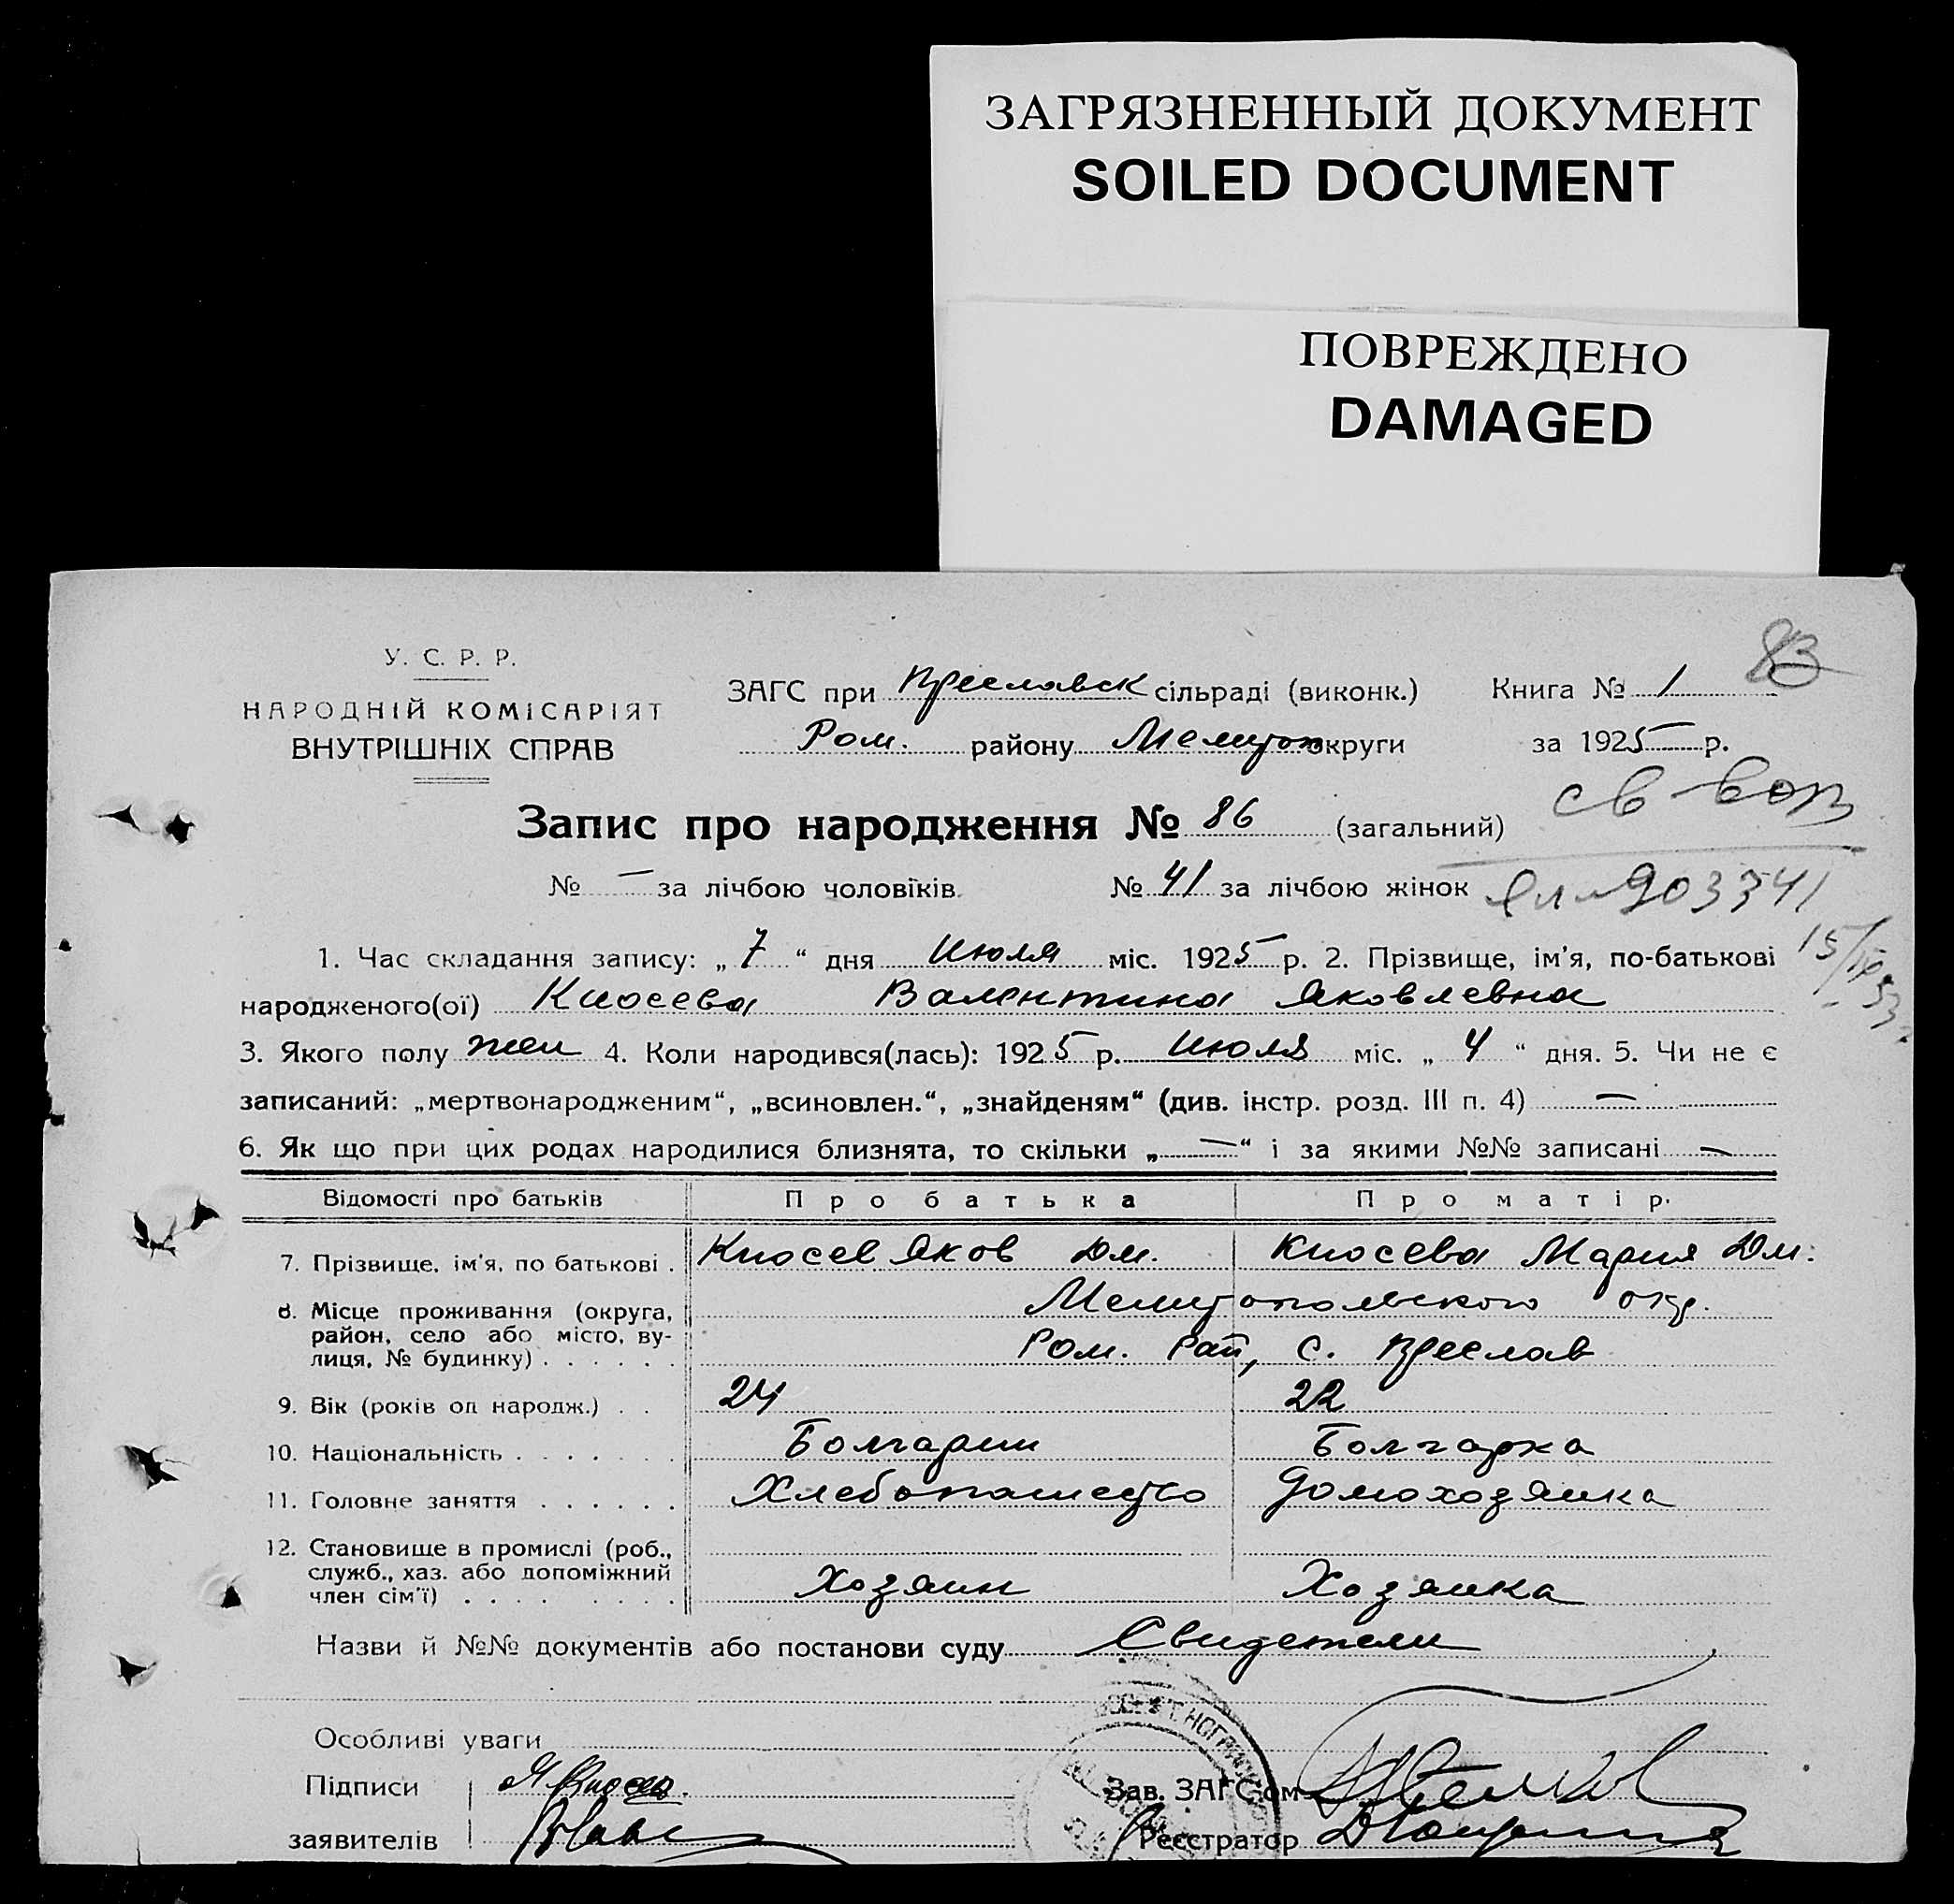 ЗАГРЯЗНЕННЫЙ ДОКУМЕНТ
SOILED DOCUMENT
ПОВРЕЖДЕНО
DAMAGED
83
У. С. Р. Р.
НАРОДНІЙ КОМІСАРІЯТ
ВНУТРІШНІХ СПРАВ
ЗАГС при Преславск сільраді (виконк.) Книга № 1
Ром. району Мелитоп округи за 1925 р.
Запис про народження № 86 (загальний)
св
№ — за лічбою чоловіків. № 41 за лічбою жінок
903341
1. Час складання запису: „ 7 “ дня Июля міс. 1925 р. 2. Прізвище, ім'я, по-батькові
народженого(ої) Киосева Валентина Яковлевна
3. Якого полу жен 4. Коли народився(лась): 1925 р. Июля міс. „ 4 “ дня. 5. Чи не є
записаний: „мертвонародженим“, „всиновлен.“, „знайденям“ (див. інстр. розд. III п. 4) —
6. Як що при цих родах народилися близнята, то скільки „ — “ і за якими №№ записані —
Відомості про батьків Про батька Про матір.
7. Прізвище, ім'я, по батькові . Киосев Яков Дм. Киосева Мария Дм.
8. Місце проживання (округа, Мелитопольского окр.
район, село або місто, ву- Ром. Рай, с. Преслав
лиця, № будинку) . . . . . .
9. Вік (років од народж.) . . 24 22
10. Національність . . . . . . . Болгарин Болгарка
11. Головне заняття . . . . . . Хлебопашество Домохозяйка
12. Становище в промислі (роб.,
служб., хаз. або допоміжний Хозяин Хозяйка
член сім'ї) . . . . . . . .
Назви й №№ документів або постанови суду Свидетели
Особливі уваги
Підписи Зав. ЗАГС'ом
заявителів Реєстратор